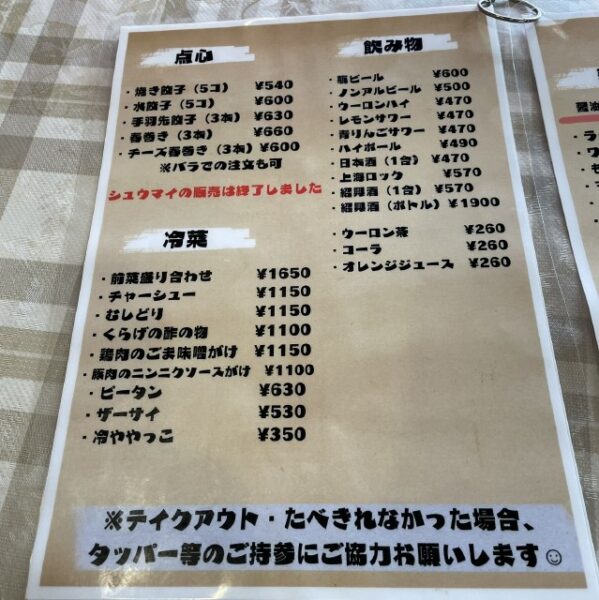 点心
・焼き餃子（5コ） ¥540
・水餃子（5コ） ¥600
・手羽先餃子（3本） ¥630
・春巻き（3本） ¥660
・チーズ春巻き（3本） ¥600
※バラでの注文も可
シュウマイの販売は終了しました
冷菜
・前菜盛り合わせ ¥1650
・チャーシュー ¥1150
・むしどり ¥1150
・くらげの酢の物 ¥1100
・鶏肉のごま味噌がけ ¥1150
・豚肉のニンニクソースがけ ¥1100
・ピータン ¥630
・ザーサイ ¥530
・冷ややっこ ¥350
飲み物
・瓶ビール ¥600
・ノンアルビール ¥500
・ウーロンハイ ¥470
・レモンサワー ¥470
・青りんごサワー ¥470
・ハイボール ¥490
・日本酒（1合） ¥470
・上海ロック ¥570
・紹興酒（1合） ¥570
・紹興酒（ボトル） ¥1900
・ウーロン茶 ¥260
・コーラ ¥260
・オレンジジュース ¥260
※テイクアウト・たべきれなかった場合、
タッパー等のご持参にご協力お願いします☺
醤油
・ラ